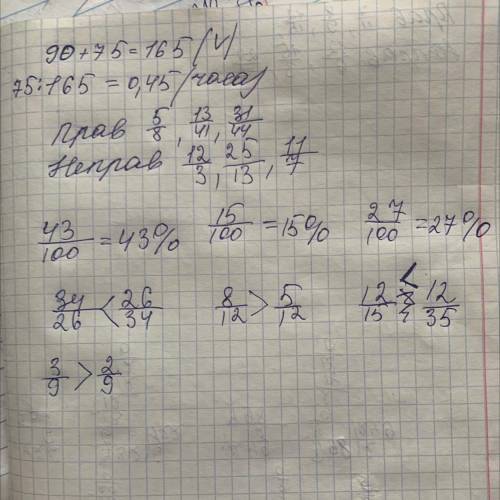 90+75=165 (ч)
75:165=0,45 (часа)
Прав 5/8, 13/41, 31/44
Неправ 12/3, 25/13, 11/7
43/100=43% 15/100=15% 27/100=27%
34/26<26/34 8/12>5/12 12/15<12/35
3/9>2/9